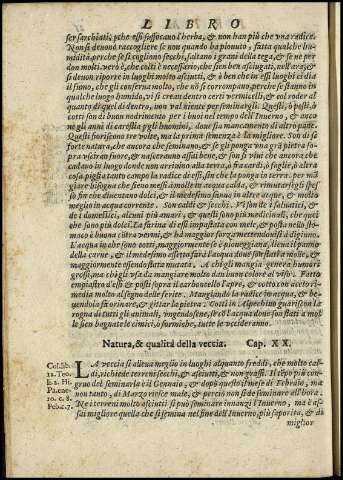 LIBRO
ser sarchiati, pche essi soffocano l'herba, & non han più che vna radice.
Non si deuono raccogliere se non quando ha piouuto, fatta qualche hu-
midità, perche se si cogliono secchi, saltano i grani della tega, & se ne per
don molti. vero è, che colti è necessario, che sien ben asciugati, nell'ara; &
si denon riporre in luoghi molto asciutti, & è ben che in essi luoghi ci dia
il fumo, che gli conserua molto, che nō si corrompano, perche se stanno in
qualche luogo humido, vi si crean dentro certi vermicelli, & col roder al
quanto di quel di dentro, non val niente per seminargli. Questi, ò pesti, ò
cotti son di buon nodrimento per i buoi nel tempo dell'Inuerno, & anco
ne gli anni di carestia pgli huomini, doue sia mancamento di altro pane.
Questi fioriscono tre volte, ma le prime semenze è la migliore. Son di sì
forte natura, che ancora che seminano, & se gli ponga vna grā pietra so
pra v'usciran fuore, & nasceranno assai bene, & son sì viui che ancora che
cadano in luogo donde non arriuino alla terra, ò fra cardi, ò foglie, ò altra
cosa piglia tanto campo la radice di essi, sin che la ponga in terra. per mā
giare bisogna che sieno messi à molle in acqua calda, & rimutarlegli spes
so fin che diuentano dolci, & il medesimo fanno in altre acque, & molto
meglio in acqua corrente. Son caldi & secchi. Vi son de i saluatici, &
de i domestici, alcuni più amari, & questi sono più medicinali, che quei
che sono più dolci. La farina d'essi impastata con mele, & posta nello sto-
maco è buona cōtra i vermi, & maggiormente mettendouisi d'digiuno.
L'acqua in che sono cotti, maggiormente se è piouegginara, lieua il panno
della carne, & il medesimo effetto farà l'acqua doue son stati à molle, &
maggiormente essendo stata mutata. A chi gli mangia genera humori
grossi, ma chi gli usa da mangiare molto dan buon colore al viso. Fatto
empiastro d'essi & posti sopra il carboncello l'apre, & cotto con aceto ri-
media molto al segno delle ferite. Mangiando la radice in acqua, & be-
uendola fa orinare, & gittar la pietra. Con i lupini, & l'Alpechino guariscon la
rogna di tutti gli animali, vngendosene, se cō l'acqua doue son stati à mol
le si en bagnate le cimici, ò formiche, tutte le vccideranno.
Natura, & qualità della veccia. Cap. XX.
Col. lib.
12. Teo-
li. 2. Hi-
Pa. ene-
ro. c. 8.
Feb. c. 7.
LA veccia si allieua meglio in luoghi alquanto freddi, che molto cal-
di, richiede terreni secchi, & asciutti, & non grassi. Il tēpo più con-
gruo del seminarla è il Gennaio, & dopò questo il mese di Febraio, ma
non tanto, di Marzo riesce male, & perciò non si dè seminare all'hora.
Ne i terreni molto asciutti si può seminare innanzi l'Inuerno, ma è as-
sai migliore quella che si semina nel fine dell'Inuerno, più saporita, & di
miglior